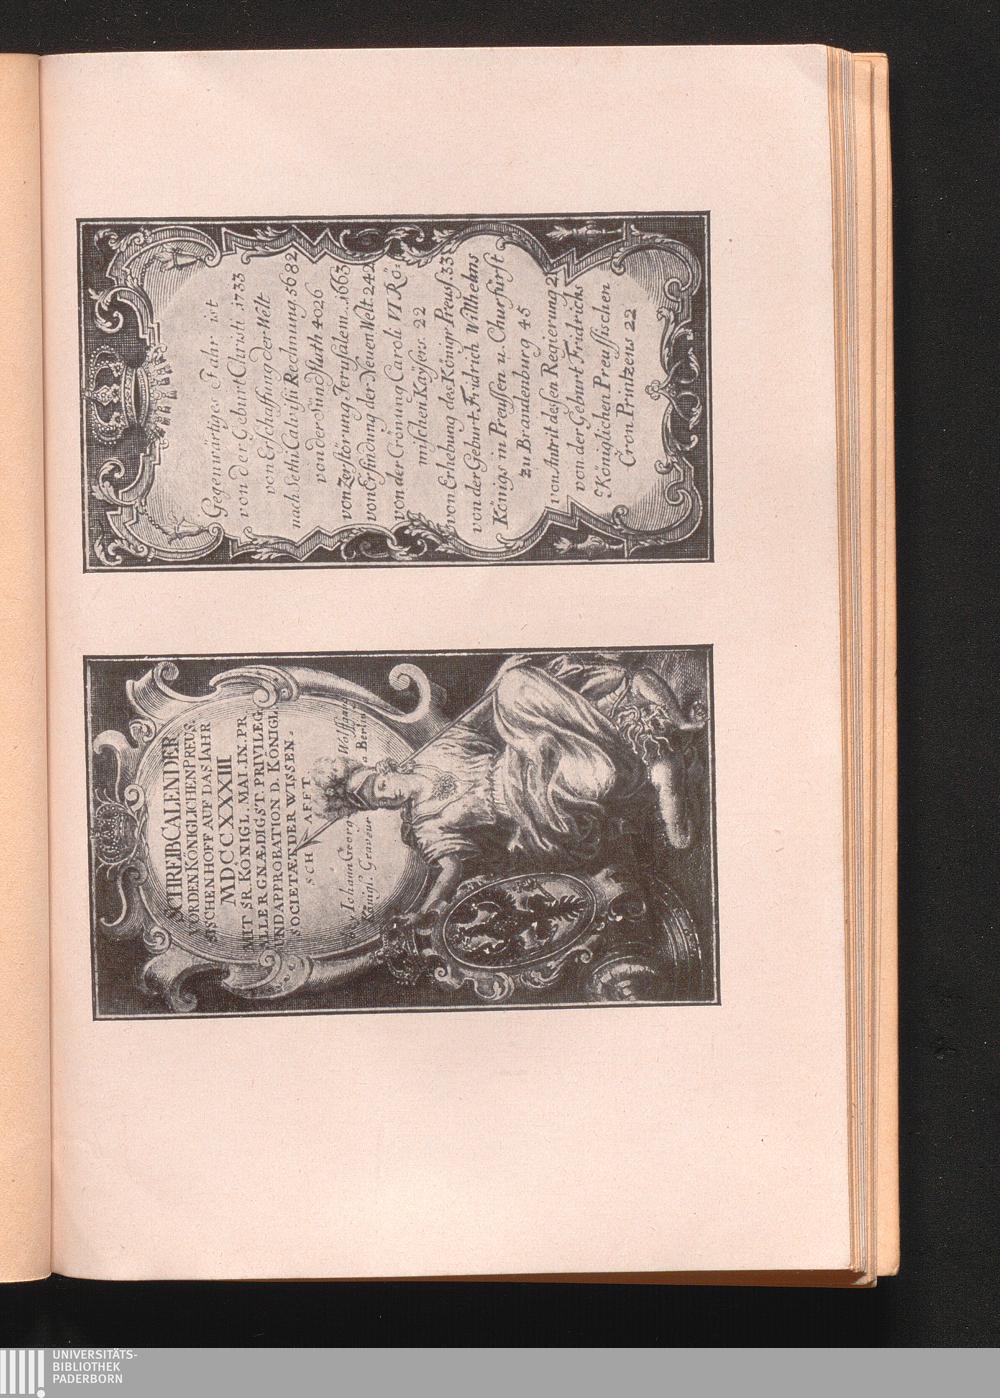 SCHREIBCALENDER
VOR DEN KÖNIGLICHEN PREUS.
SISCHEN HOFF AUF DAS JAHR
MDCCXXXIII
MIT SR. KÖNIGL. MAJ. IN. PR.
ALLERGNÆDIGST. PRIVILEG.
UND APPROBATION D. KÖNIGL.
SOCIETÆT DER WISSEN-
SCHAFFT
Johann Georg Wolffgang
Königl. Graveur a Berlin
Gegenwärtiges Jahr ist
von der Geburt Christi 1733
von Erschaffung der Welt
nach Sethi Calvisii Rechnung 5682
von der Sündfluth 4026
von Zerstörung Jerusalem 1663
von Erfindung der Neuen Welt 242
von der Crönung Caroli VI Rö-
mischen Kaÿsers 22
von Erhebung des Königr Preuss. 33
von der Geburt Fridrich Wilhelms
Königs in Preussen u. Churfürst
zu Brandenburg 45
von Antrit dessen Regierung 21
von der Geburt Fridrichs
Königlichen Preussischen
Cron Printzens 22
UNIVERSITÄTS-
BIBLIOTHEK
PADERBORN